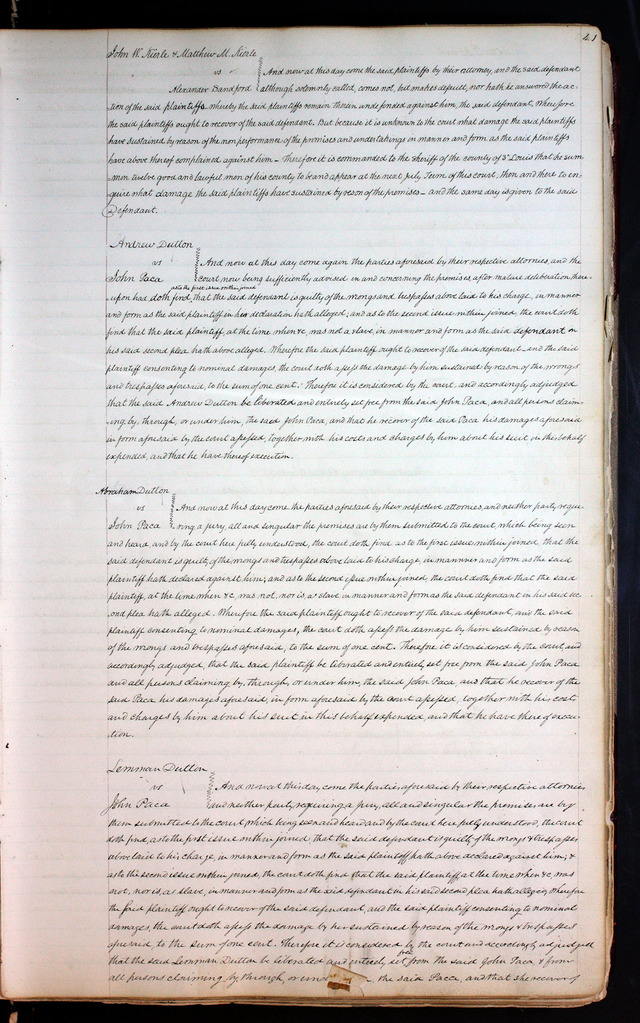 41
John W. Kierle & Matthew M. Kierle
vs And now at this day come the said plaintiffs by their attorney, and the said defendant
Alexander Bandford although solemnly called, comes not, but makes default, nor hath he answered the ac-
tion of the said plaintiffs whereby the said plaintiffs remain therein undefended against him, the said defendant. Wherefore
the said plaintiffs ought to recover of the said defendant. But because it is unknown to the court what damage the said plaintiffs
have sustained by reason of the nonperformance of the promises and undertakings in manner and form as the said plaintiffs
have above thereof complained against him – Therefore it is commanded to the Sheriff of the county of St Louis that he sum-
mon twelve good and lawful men of his county to be and appear at the next July Term of this court, then and there to en-
quire what damage the said plaintiffs have sustained by reason of the premises – and the same day is given to the said
Defendant.
Andrew Dutton
vs And now at this day come again the parties aforesaid by their respective attornies, and the
John Paca court now being sufficiently advised in and concerning the premises, after mature deliberation there-
as to the first issue within joined
upon had doth find, that the said defendant is guilty of the wrongs and trespasses above laid to his charge, in manner
and form as the said plaintiff in her declaration hath alleged; and as to the second issue within joined, the court doth
find that the said plaintiff, at the time when &c, was not a slave, in manner and form as the said defendant in
his said second plea hath above alleged. Wherefore the said plaintiff ought to recover of the said defendant – and the said
plaintiff consenting to nominal damages, the court doth assess the damage by him sustained by reason of the wrongs
and trespasses aforesaid, to the sum of one cent. Therefore it is considered by the court, and accordingly adjudged
that the said Andrew Dutton be liberated and entirely set free from the said John Paca, and all persons claim-
ing by, through, or under him, the said John Paca, and that he recover of the said Paca his damages aforesaid
in form aforesaid by the court assessed, together with his costs and charges by him about his suit in this behalf
expended, and that he have thereof execution.
Abraham Dutton
vs And now at this day come the parties aforesaid by their respective attornies, and neither party requi-
John Paca ring a jury, all and singular the premises are by them submitted to the court, which being seen
and heard, and by the court here fully understood, the court doth find, as to the first issue within joined, that the
said defendant is guilty of the wrongs and trespasses above laid to his charge, in manner and form as the said
plaintiff hath declared against him; and as to the second issue within joined, the court doth find that the said
plaintiff, at the time when &c, was not, nor is, a slave in manner and form as the said defendant in his said sec-
ond plea hath alleged. Wherefore the said plaintiff ought to recover of the said defendant, and the said
plaintiff consenting to nominal damages, the court doth assess the damage by him sustained by reason
of the wrongs and trespasses aforesaid, to the sum of one cent. Therefore it is considered by the court, and
accordingly adjudged, that the said plaintiff be liberated and entirely set free from the said John Paca
and all persons claiming by, through, or under him, the said John Paca and that he recover of the
said Paca his damages aforesaid, in form aforesaid by the court assessed, together with his costs
and charges by him about his suit in this behalf expended, and that he have thereof execu-
tion.
Lemman Dutton
vs And now at this day, come the parties aforesaid by their respective attornies
John Paca and neither party requiring a jury, all and singular the premises are by
them submitted to the court which being seen and heard and by the court here fully understood, the court
doth find, as to the first issue within joined, that the said defendant is guilty of the wrongs & trespasses
above laid to his charge, in manner and form as the said plaintiff hath above declared against him; &
as to the second issue within joined, the court doth find that the said plaintiff, at the time when &c was
not, nor is, a slave, in manner and form as the said defendant in his said second plea hath alleged; Wherefore
the said plaintiff ought to recover of the said defendant, and the said plaintiff consenting to nominal
damages, the court doth assess the damage by her sustained by reason of the wrongs & trespasses
aforesaid, to the sum of one cent. Therefore it is considered by the court and accordingly adjudged
free
that the said Lemman Dutton be liberated and entirely set from the said John Paca & from
all persons claiming by, through, or under the said Paca, and that she recover of